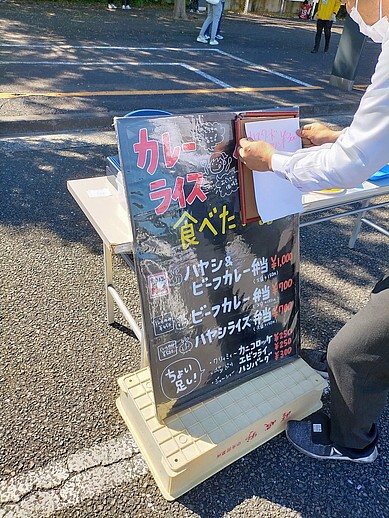 カレー
ライス
食べた
ハヤシ&
ビーフカレー弁当 ¥1,000
ビーフカレー弁当 ¥700
ハヤシライス弁当 ¥700
ちょい
足し!
カニコロッケ ¥250
エビフライ ¥250
ハンバーグ ¥300